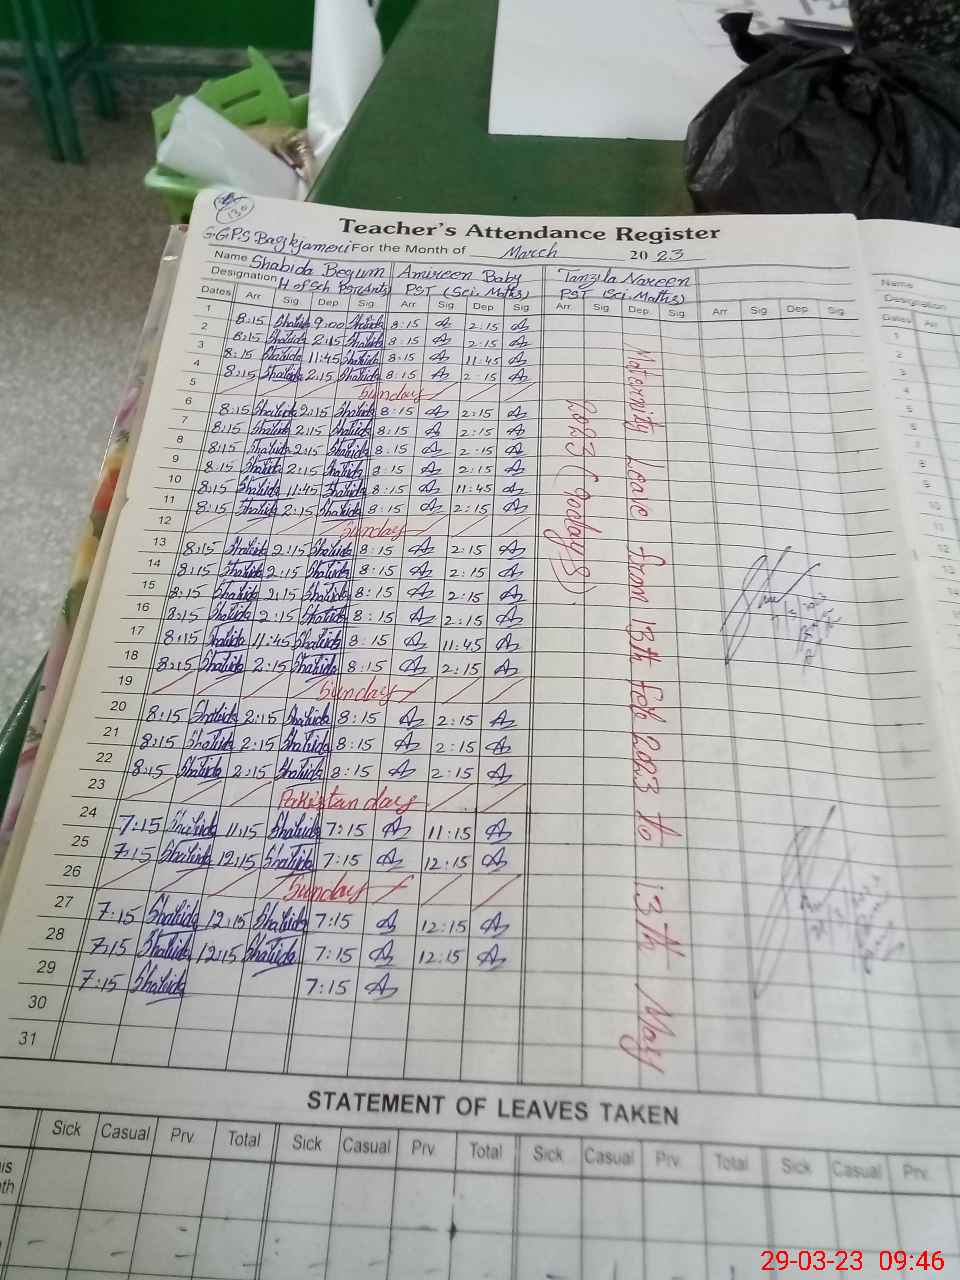 130
Teacher's Attendance Register
G.G.P.S. For the Month of March 2023
Name Shahida Begum Amireen Baby Tanzila Nareen
Designation H of Sch PST (Sci. Maths) PST (Sci. Maths)
Dates Arr Sig Dep Sig Arr Sig Dep Sig Arr Sig Dep. Sig Arr Sig Dep Sig
1 8:15 Shahida 9:00 Shahida 8:15 2:15
2 8:15 Shahida 2:15 Shahida 8:15 2:15
3 8:15 Shahida 11:45 Shahida 8:15 11:45
4 8:15 Shahida 2:15 Shahida 8:15 2:15
5 Sunday
6 8:15 Shahida 2:15 Shahida 8:15 2:15
7 8:15 Shahida 2:15 Shahida 8:15 2:15
8 8:15 Shahida 2:15 Shahida 8:15 2:15
9 8:15 Shahida 2:15 Shahida 8:15 2:15
10 8:15 Shahida 11:45 Shahida 8:15 11:45
11 8:15 Shahida 2:15 Shahida 8:15 2:15
12 Sunday
13 8:15 Shahida 2:15 Shahida 8:15 2:15
14 8:15 Shahida 2:15 Shahida 8:15 2:15
15 8:15 Shahida 2:15 Shahida 8:15 2:15
16 8:15 Shahida 2:15 Shahida 8:15 2:15
17 8:15 Shahida 11:45 Shahida 8:15 11:45
18 8:15 Shahida 2:15 Shahida 8:15 2:15
19 Sunday
20 8:15 Shahida 2:15 Shahida 8:15 2:15
21 8:15 Shahida 2:15 Shahida 8:15 2:15
22 8:15 Shahida 2:15 Shahida 8:15 2:15
23 Pakistan day
24 7:15 Shahida 11:15 Shahida 7:15 11:15
25 7:15 Shahida 12:15 Shahida 7:15 12:15
26 Sunday
27 7:15 Shahida 12:15 Shahida 7:15 12:15
28 7:15 Shahida 12:15 Shahida 7:15 12:15
29 7:15 Shahida 7:15
30
31
Maternity Leave from 13th Feb 2023 to 13th May
2023 (90days).
STATEMENT OF LEAVES TAKEN
Sick Casual Prv. Total Sick Casual Prv. Total Sick Casual Prv. Total Sick Casual Prv.
Name
Designation
Dates Arr
1
2
3
4
5
6
7
8
9
10
11
12
13
29-03-23 09:46